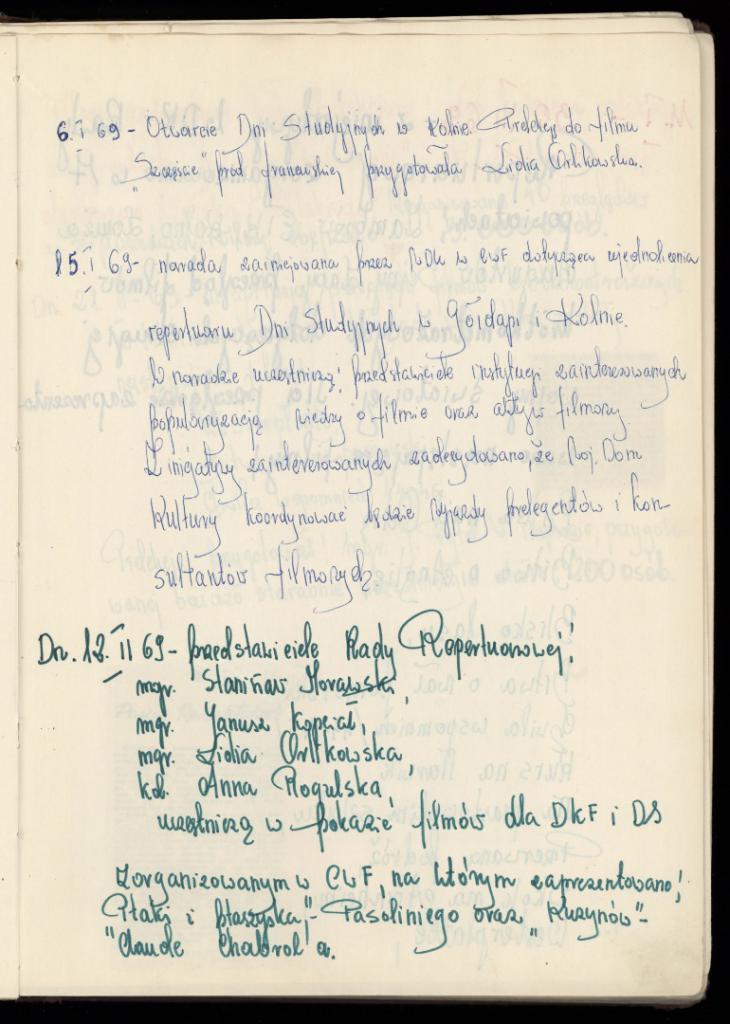 6.I 69 - Otwarcie Dni Studyjnych w Kolnie. Prelekcję do filmu
"Szczęście" prod. francuskiej przygotowała Lidia Orlikowska.
15.I 69 - narada zainicjowana przez WDK w CWF dotycząca ujednolicenia
repertuaru Dni Studyjnych w Gołdapi i Kolnie.
W naradzie uczestniczą: przedstawiciele instytucji zainteresowanych
popularyzacją wiedzy o filmie oraz aktyw filmowy.
Z inicjatywy zainteresowanych zadecydowano, że Woj. Dom
Kultury koordynować będzie wyjazdy prelegentów i kon-
sultantów filmowych.
Dn. 12.II 69 - przedstawiciele Rady Repertuarowej:
mgr. Stanisław Morawski,
mgr. Janusz Kopciał,
mgr. Lidia Orlikowska,
kol. Anna Rogulska,
uczestniczą w pokazie filmów dla DKF i DS
zorganizowanym w CWF, na którym zaprezentowano:
"Ptaki i ptaszyska" - Pasoliniego oraz "Kuzynów" -
"Claude Chabrol'a.